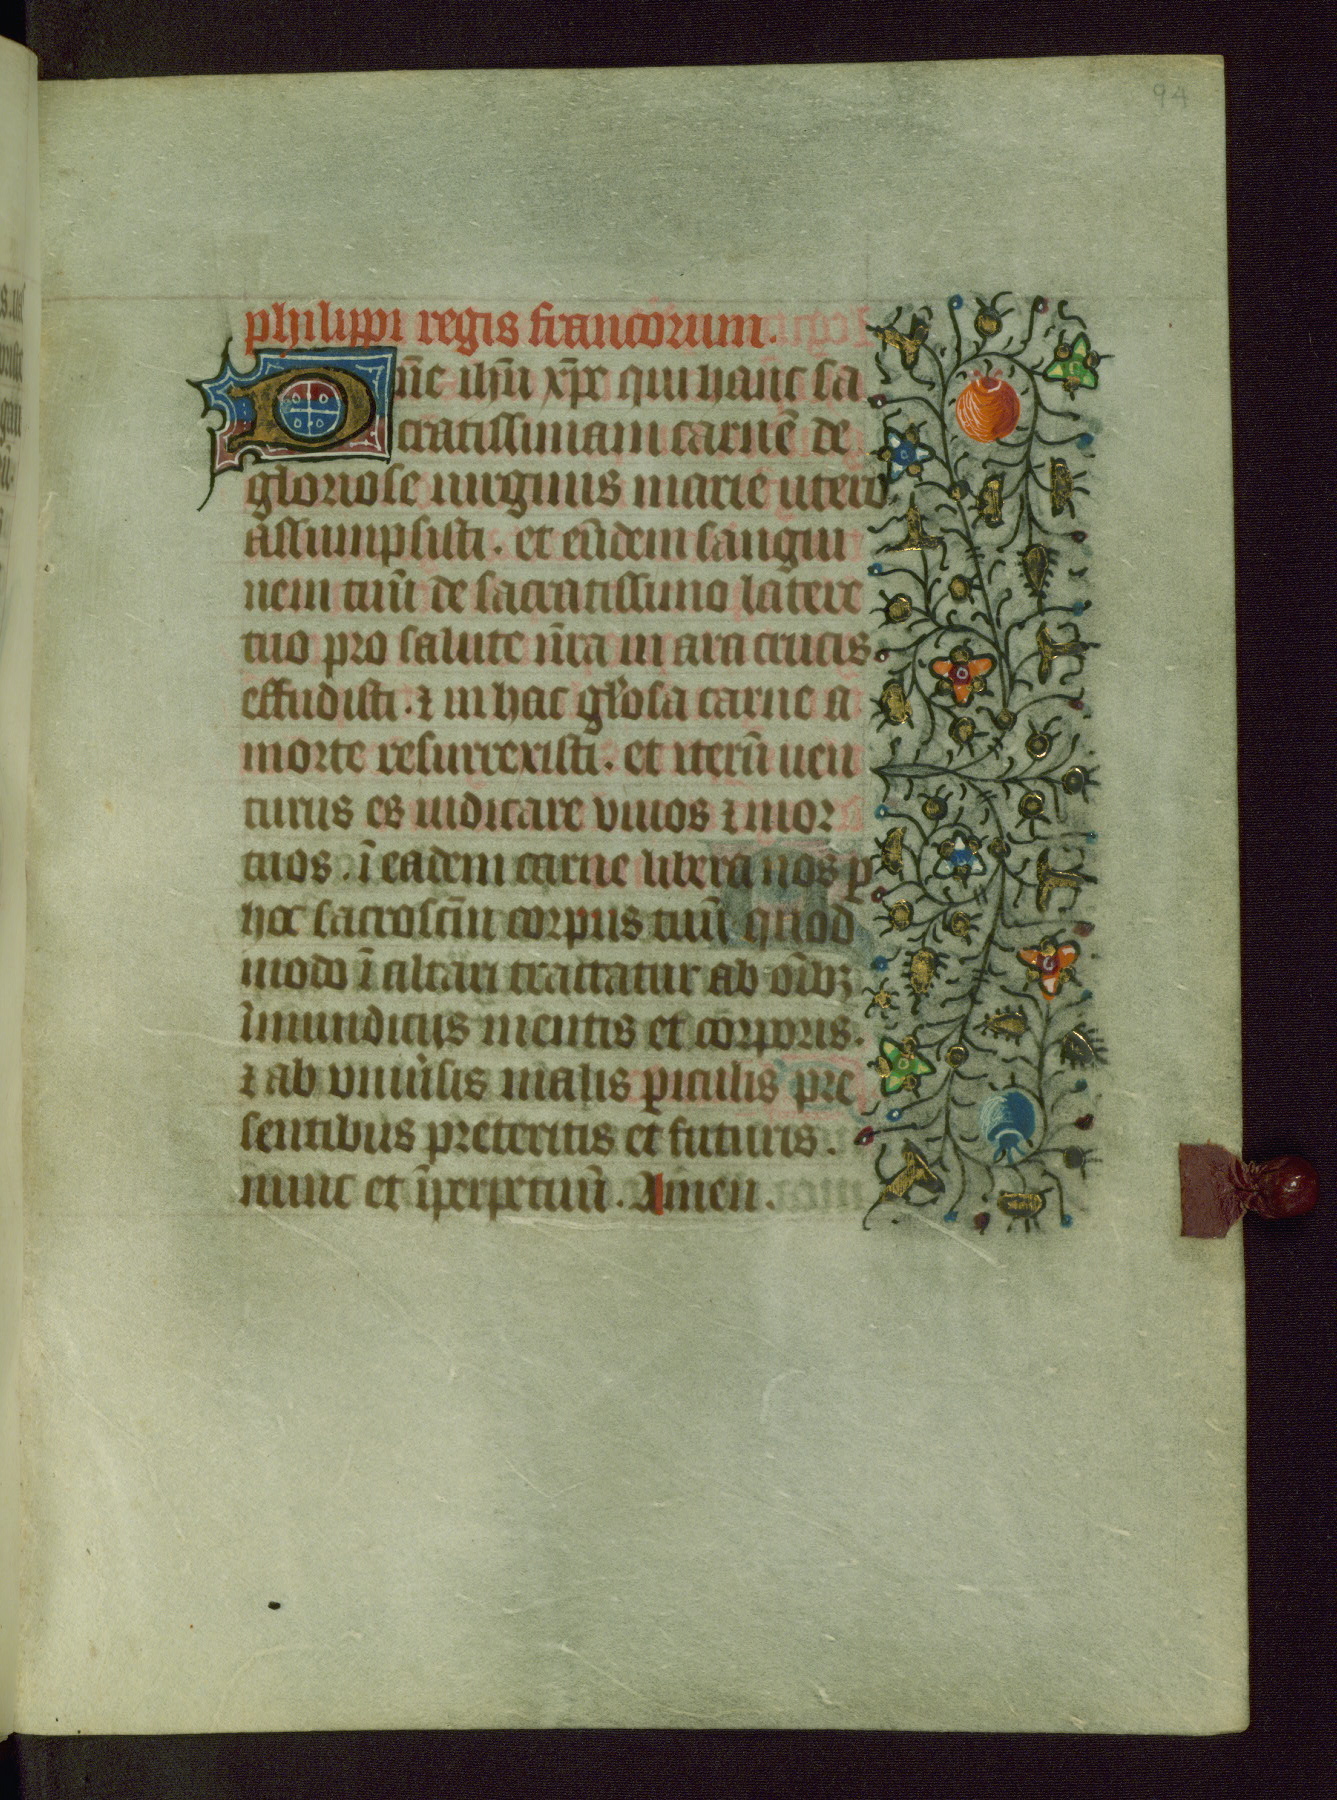 94
philippi regis francorum.
Dn̄e ihū xp̄e qui hanc sa
cratissimam carnē de
gloriose uirginis marie utero
assumpsisti. et eūdem sangui
nem tuū de sacratissimo latere
tuo pro salute nr̄a in ara crucis
effudisti. ⁊ in hac gl̓osa carne a
morte resurrexisti. et iterū uen
turus es iudicare viuos ⁊ mor
tuos. ī eadem carne libera nos ꝑ
hoc sacroscm̄ corpus tuū quod
modo ī altari tractatur ab oībꝫ
īmundiciis mentis et corporis.
⁊ ab vniu̓sis malis ꝑiculis pre
sentibus preteritis et futuris.
nunc et īperpetuū. Amen.